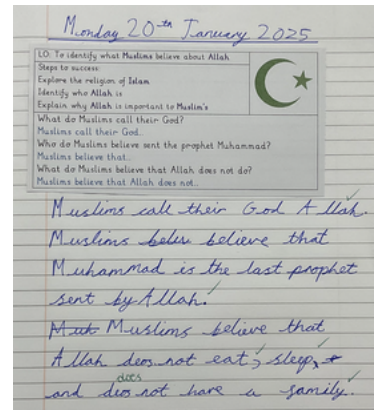 Monday 20th January 2025
LO: To identify what Muslims believe about Allah
Steps to success:
Explore the religion of Islam
Identify who Allah is
Explain why Allah is important to Muslim's
What do Muslims call their God?
Muslims call their God..
Who do Muslims believe sent the prophet Muhammad?
Muslims believe that..
What do Muslims believe that Allah does not do?
Muslims believe that Allah does not..
Muslims call their God Allah.
Muslims believe that
Muhammad is the last prophet
sent by Allah.
Muslims believe that
Allah deos not eat, sleep,
does
and deos not have a family.